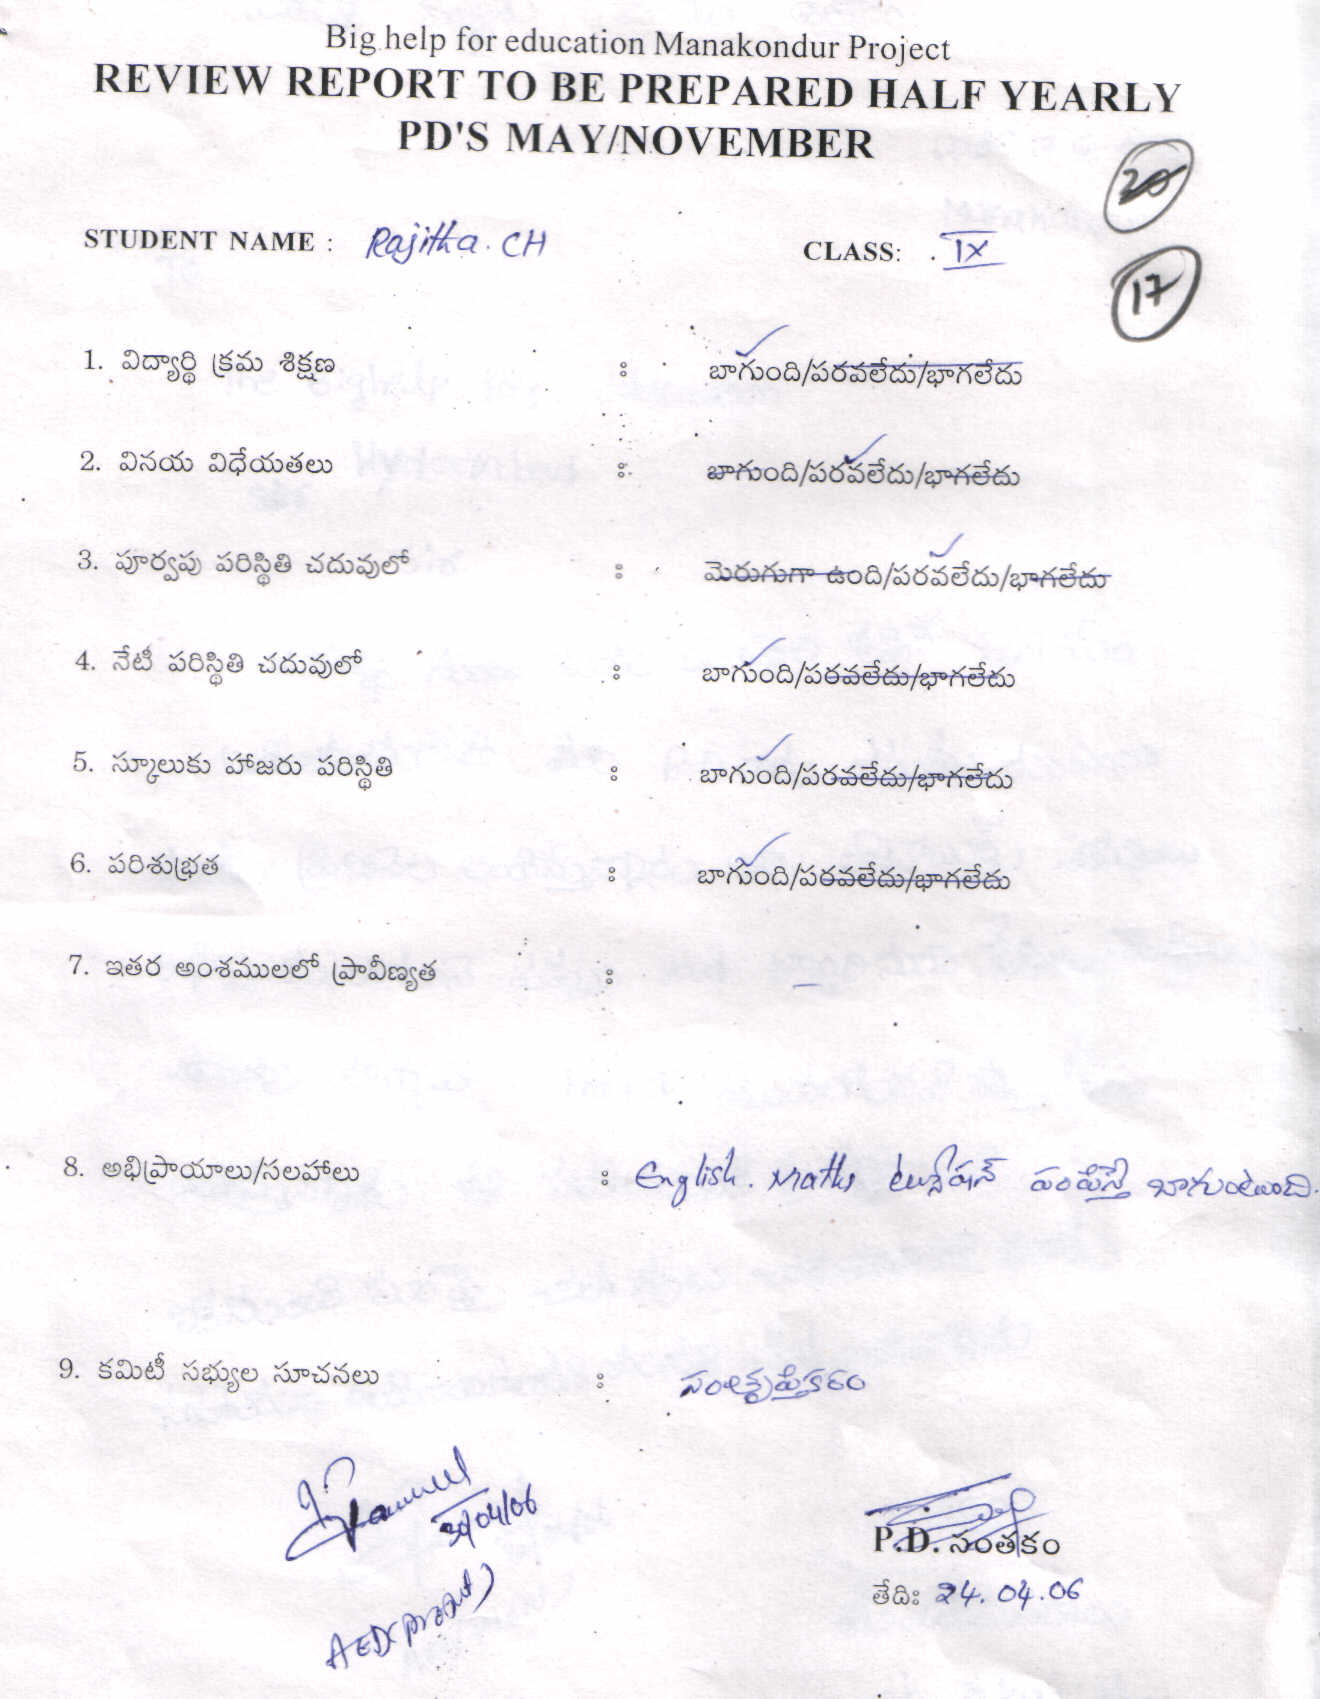 Big help for education Manakondur Project
REVIEW REPORT TO BE PREPARED HALF YEARLY
PD'S MAY/NOVEMBER
20
STUDENT NAME : Rajitha. CH CLASS: IX
17
1. విద్యార్థి క్రమ శిక్షణ : బాగుంది/పరవలేదు/భాగలేదు
2. వినయ విధేయతలు : బాగుంది/పరవలేదు/భాగలేదు
3. పూర్వపు పరిస్థితి చదువులో : మెరుగుగా ఉంది/పరవలేదు/భాగలేదు
4. నేటి పరిస్థితి చదువులో : బాగుంది/పరవలేదు/భాగలేదు
5. స్కూలుకు హాజరు పరిస్థితి : బాగుంది/పరవలేదు/భాగలేదు
6. పరిశుభ్రత : బాగుంది/పరవలేదు/భాగలేదు
7. ఇతర అంశములలో ప్రావీణ్యత : –
8. అభిప్రాయాలు/సలహాలు : English. Maths ట్యూషన్ పంపిస్తే బాగుంటుంది.
9. కమిటీ సభ్యుల సూచనలు : సంతృప్తికరం
30/04/06
P.D. సంతకం
తేదిః 24.04.06